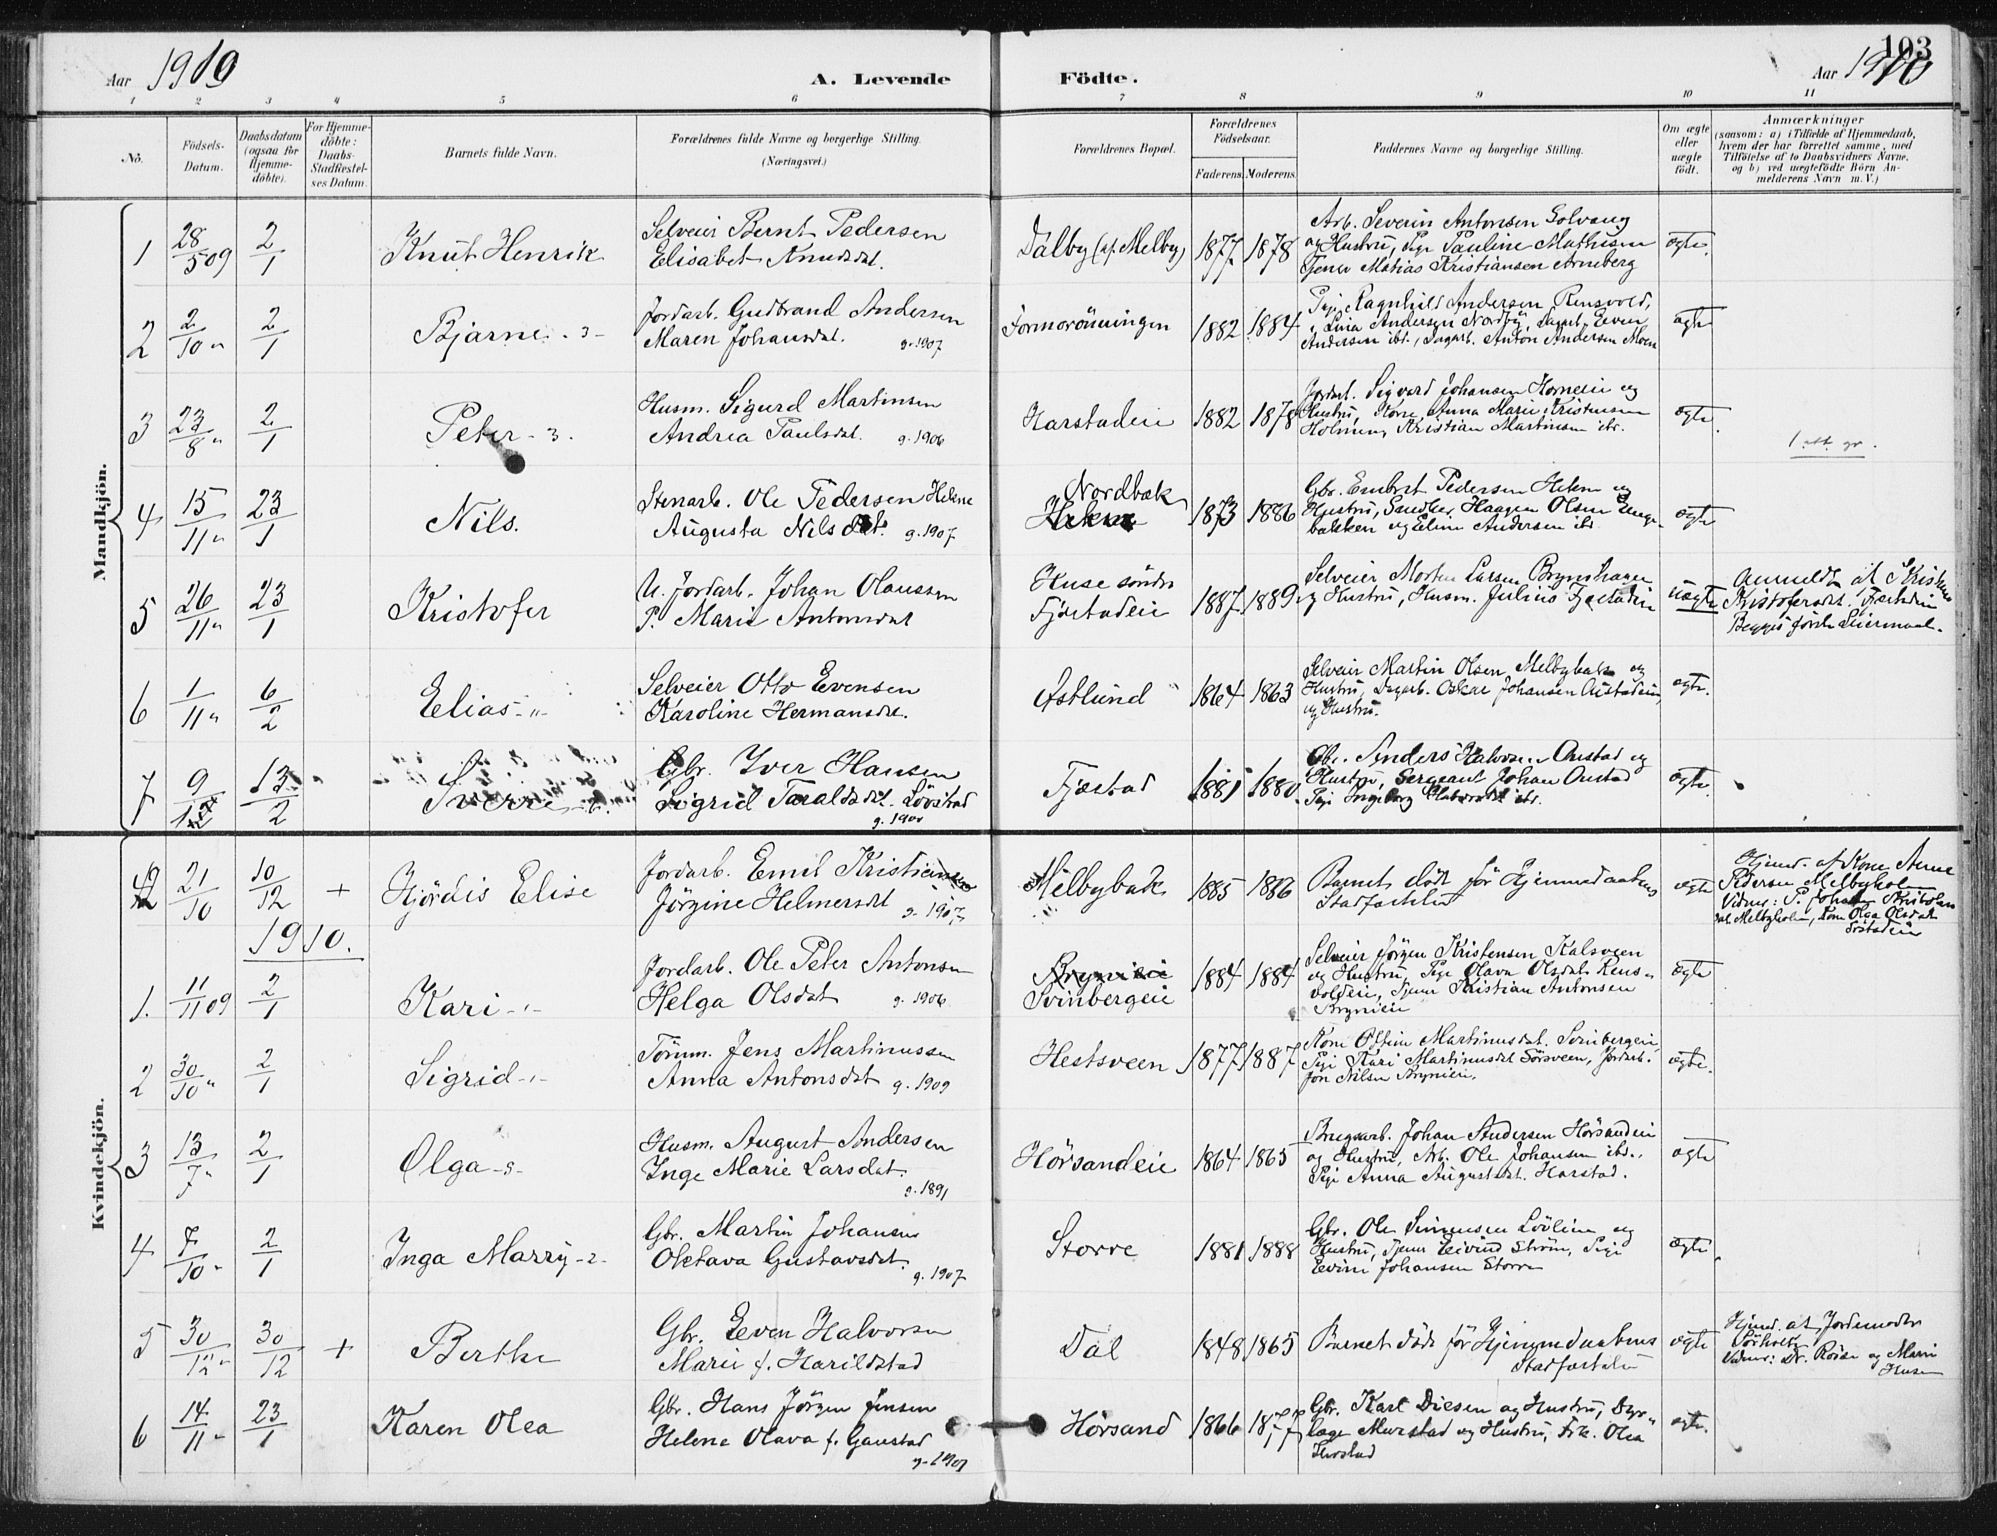 103
Aar 1910
A. Levende
Födte.
Aar 1910
1 2 3 4 5 6 7 8 9 10 11
No.
Födsels-
Datum.
Daabsdatum
(ogsaa for
Hjemme-
döbte).
For Hjemme-
döbte:
Daabs-
Stadfæstel-
ses Datum.
Barnets fulde Navn.
Forældrenes fulde Navne og borgerlige Stilling.
(Næringsvei.)
Forældrenes Bopæl.
Forældrenes
Födselsaar.
Faderens. Moderens.
Faddernes Navne og borgerlige Stilling.
Om ægte
eller
uægte
födt.
Anmærkninger
(saasom: a) i Tilfælde af Hjemmedaab,
hvem der har forrettet samme, med
Tilföielse af to Daabsvidners Navne,
og b) ved uægtefödte Börn An-
melderens Navn m. V.)
Mandkjön.
1 28/5 09 2/1 Knut Henrik
Selveier Bernt Pedersen
Elisabet Knudsdat.
Dalby (af Melby) 1877 1878
Arb. Severin Antonsen Solvang
og Hustru, Pige Pauline Mathisen
Tjener Matias Kristiansen Arneberg
ægte.
2 2/10 " 2/1 Bjarne - 3 -
Jordarb. Gudbrand Andersen
Maren Johansdat. g. 1907
Formorönningen 1882 1884
Pige Ragnhild Andersen Rensvold,
" Lina Andersen Nordby, Dagarb. Even
Andersen ibd., Dagarb. Anton Andersen Moen
ægte
3 23/8 " 2/1 Peter - 3.
Husm. Sigurd Martinsen
Andrea Paulsdat. g. 1906
Harstadeie 1882 1878
Jordarb. Sigvard Johansen Horneeie og
Hustru, Kone Anna Marie Kristensen
Holmen, Kristian Martinsen ibd.
ægte.
1 att. gr.
4 15/11 " 23/1 Nils.
Stenarb. Ole Pedersen Hekne
Augusta Nilsdat. g. 1907.
Nordbæk
Hekne
1873 1886
Gbr. Embret Pedersen Hekne og
Hustru, Sandker Haagen Olsen Enge-
bakken og Eline Andersen ibd
ægte
5 26/11 " 23/1 Kristofer
U. Jordarb. Johan Olaussen
P. Marie Antonsdat
Huse söndre
Fjöstadeie
1887. 1889
Selveier Morten Larsen Brynshagen
og Hustru, Husm. Julius Fjestadeie
uægte
Anmeldt af
Kristofersdat. Fjæstadeie
Begges förste Leiermaal.
6 1/11 " 6/2 Elias - " -
Selveier Otto Evensen
Karoline Hermansdat.
Östlund 1864 1863
Selveier Martin Olsen Melbybakk og
Hustru, Dagarb. Oskar Johansen Oustadeie,
og Hustru.
ægte.
7 9/12 13/2 Sverre
Gbr. Iver Hansen
Sigrid Taraldsdat. Lövstad
g. 1900
Fjæstad 1881 1880
Gbr. Anders Halvorsen Oustad og
Hustru, Sergeant Johan Oustad
Pige Ingeborg ibd.
ægte.
Kvindekjön.
42 21/10 10/12 + Hjördis Elise
Jordarb. Emil Kristiansen
Jörgine Helmersdat g. 1907
Melbybakk 1885 1886
Barnet död för Hjemmedaabens
Stadfæstelse
ægte
Hjemd. af Kone Anne
Pedersen Melbyholm
Vidner: P. Johan
Melbyholm, Kone Olga Olsdat
1910.
1. 11/11 09 2/1 Kari - " -
Jordarb. Ole Peter Antonsen
Helga Olsdat g. 1906
Brynieie
Svinbergeie
1884 1884
Selveier Jörgen Kristensen Kalsveen
og Hustru, Pige Olava Olsdat. Rens-
voldeie, Tjener Kristian Antonsen
Brynieie
ægte
2 30/10 " 2/1 Sigrid - " -
Tömm. Jens Martinussen
Anna Antonsdat g. 1909
Hestsveen 1877 1887
Kone Martinusdat. Svinbergeie,
Pige Kari Martinusdat Sörsveen, Jordarb.
Jon Nilsen Brynieie.
ægte.
3 13/7 " 2/1 Olga - 8 -
Husm. August Andersen
Inge Marie Larsdat.
g. 1891
Hörsandeie 1864 1865
Brugsarb. Johan Andersen Hörsandeie
og Hustru, Arb. Ole Johansen ibd.,
Pige Anna Augustsdat. Harstad.
ægte
4 7/10 " 2/1 Inga Marry - 2 -
Gbr. Martin Johansen
Oktava Gustavsdat.
g. 1907
Storre 1881 1888
Gbr. Ole Simensen Lövlien og
Hustru, Tjener Eivind Ström, Pige
Evine Johansen Storre
ægte.
5 30/12 " 30/12 + Berthe
Gbr. Even Halvorsen
Marie f. Harildstad
Dal 1848 1865
Barnet död för Hjemmedaabens
Stadfæstelse
ægte
Hjemd. af Jordemoder
Sörholte
Vidner: Dr. Röise og Marie
Husen
6 14/11 " 23/1 Karen Olea
Gbr. Hans Jörgen Jensen
Helene Olava f. Gaustad
g. 1901
Hörsand 1866 1877
Gbr. Karl Diesen og Hustru, Dyr-
læge Murstad og Hustru, Frk. Olea
ægte.